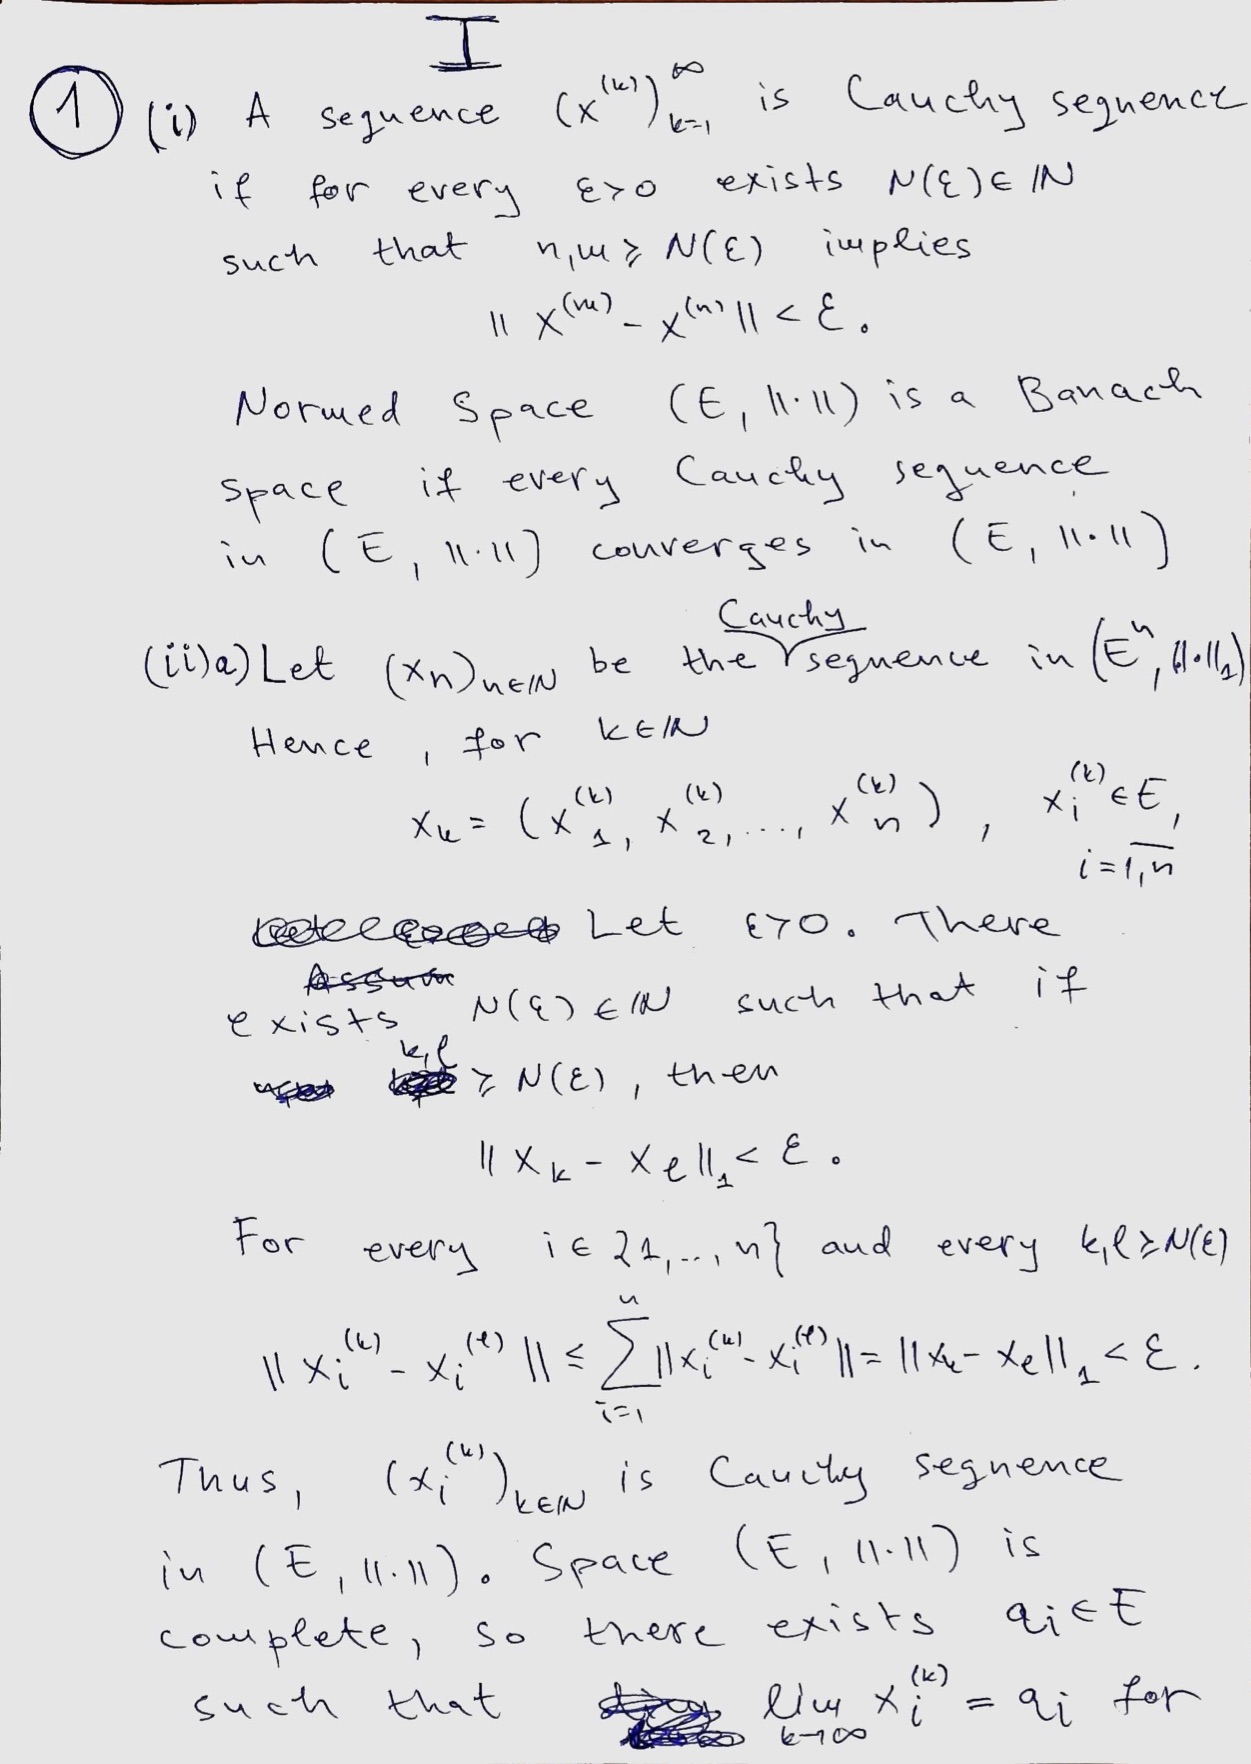 I
① (i) A sequence (x^(k))_{k=1}^∞ is Cauchy sequence
if for every ε>0 exists N(ε)∈ℕ
such that n,m ≥ N(ε) implies
‖x^(m) - x^(n)‖ < ε.
Normed Space (E, ‖·‖) is a Banach
space if every Cauchy sequence
in (E, ‖·‖) converges in (E, ‖·‖)
(ii)a) Let (x_n)_{n∈ℕ} be the Cauchy sequence in (E^n, ‖·‖_1)
Hence, for k∈ℕ
x_k = (x_1^(k), x_2^(k), ..., x_n^(k)), x_i^(k) ∈ E,
i = \overline{1,n}
Let ε>0. There
Assum
exists N(ε)∈ℕ such that if
k,l ≥ N(ε), then
‖x_k - x_l‖_1 < ε.
For every i∈{1,..,n} and every k,l ≥ N(ε)
‖x_i^(k) - x_i^(l)‖ ≤ ∑_{i=1}^n ‖x_i^(k) - x_i^(l)‖ = ‖x_k - x_l‖_1 < ε.
Thus, (x_i^(k))_{k∈ℕ} is Cauchy sequence
in (E, ‖·‖). Space (E, ‖·‖) is
complete, so there exists a_i∈E
such that lim_{k→∞} x_i^(k) = a_i for